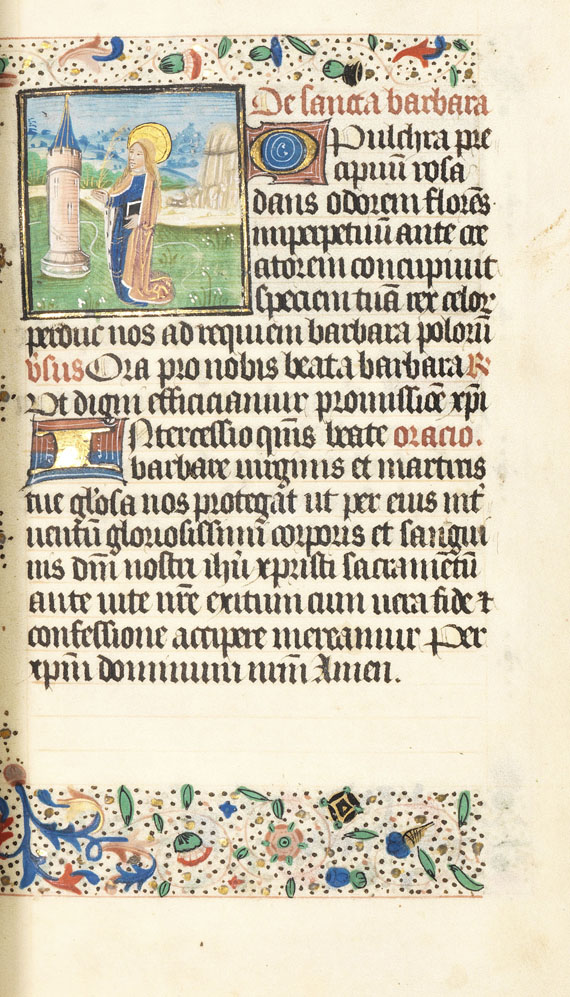 De sancta barbara
O Pulchra pre
cipuū rosa
dans odorem florēs
imperpetuū ante cre
atorem concupiuit
speciem tuā rex celoꝝ
perduc nos ad requiem barbara polorū
v̄sus Ora pro nobis beata barbara R̷
Vt digni efficiamur promissiōe xp̄i
INtercessio quis̄ beate oracio.
barbare uirginis et martiris
tue gl'osa nos protegat ut per eius int'
uentū gloriosissimi corporis et sangui
nis dn̄i nostri ih̄u xpristi sacramētū
ante uite nr̄e exitum cum uera fide ⁊
confessione accipere mereamur Per
xpm̄ dominum nrm̄ Amen.